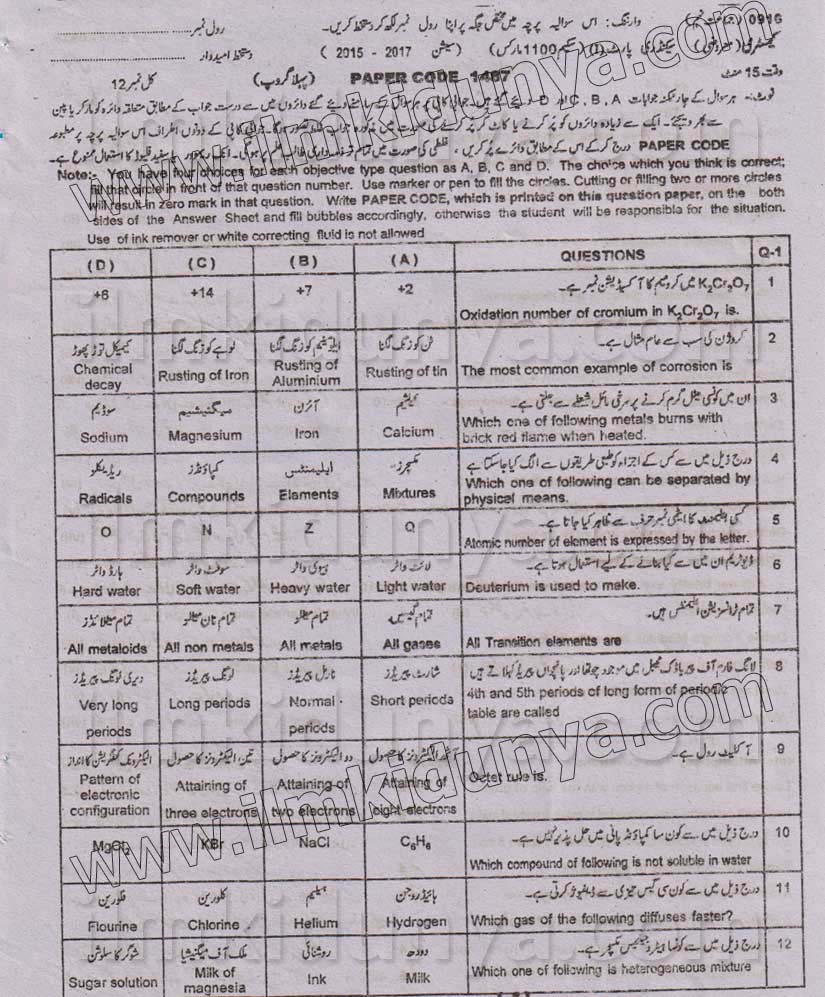 0916
وارننگ: اس سوالیہ پرچہ میں مختص جگہ پر اپنا رول نمبر لکھ کر دستخط کریں۔ رول نمبر
کیمسٹری (معروضی) سیکنڈری پارٹ I (سکیم 1100 مارکس) (سیشن 2015 - 2017) دستخط امیدوار
وقت 15 منٹ PAPER CODE 1487 (پہلا گروپ) کل نمبر 12
نوٹ:- ہر سوال کے چار ممکنہ جوابات A ، B ، C اور D دیئے گئے ہیں۔ جوابی کاپی پر ہر سوال کے سامنے دیئے گئے دائروں میں سے درست جواب کے مطابق متعلقہ دائرہ کو مارکر یا پین
سے بھر دیجئے۔ ایک سے زیادہ دائروں کو پُر کرنے یا کاٹ کر پُر کرنے کی صورت میں مذکورہ جواب غلط تصور ہوگا۔ جوابی کاپی کے دونوں اطراف اس سوالیہ پرچہ پر مطبوعہ
PAPER CODE درج کر کے اس کے مطابق دائرے پُر کریں، غلطی کی صورت میں تمام تر ذمہ داری طالب علم پر ہوگی۔ انک ریموور یا سفید فلیوڈ کا استعمال ممنوع ہے۔
Note:- You have four choices for each objective type question as A, B, C and D. The choice which you think is correct;
fill that circle in front of that question number. Use marker or pen to fill the circles. Cutting or filling two or more circles
will result in zero mark in that question. Write PAPER CODE, which is printed on this question paper, on the both
sides of the Answer Sheet and fill bubbles accordingly, otherwise the student will be responsible for the situation.
Use of ink remover or white correcting fluid is not allowed
(D) (C) (B) (A) QUESTIONS Q-1
K₂Cr₂O₇ میں کرومیم کا آکسیڈیشن نمبر ہے۔ 1
+6 +14 +7 +2
Oxidation number of cromium in K₂Cr₂O₇ is.
کیمیکل توڑ پھوڑ لوہے کو زنگ لگنا ایلومینیم کو زنگ لگنا ٹن کو زنگ لگنا کروژن کی سب سے عام مثال ہے۔ 2
Chemical decay Rusting of Iron Rusting of Aluminium Rusting of tin The most common example of corrosion is
سوڈیم میگنیشیم آئرن کیلشیم ان میں کونسی میٹل گرم کرنے پر سرخی مائل شعلے سے جلتی ہے۔ 3
Sodium Magnesium Iron Calcium Which one of following metals burns with
brick red flame when heated.
ریڈیکلز کمپاؤنڈز ایلیمنٹس مکسچرز درج ذیل میں سے کس کے اجزاء کو طبعی طریقوں سے الگ کیا جا سکتا ہے 4
Radicals Compounds Elements Mixtures Which one of following can be separated by
physical means.
O N Z Q کسی ایلیمنٹ کا اٹامک نمبر حرف سے ظاہر کیا جاتا ہے۔ 5
Atomic number of element is expressed by the letter.
ہارڈ واٹر سوفٹ واٹر ہیوی واٹر لائٹ واٹر ڈیوٹریم ان میں سے کیا بنانے کے لیے استعمال ہوتا ہے۔ 6
Hard water Soft water Heavy water Light water Deuterium is used to make.
تمام میٹلائڈز تمام نان میٹلز تمام میٹلز تمام گیسیں تمام ٹرانزیشن ایلیمنٹس ہیں۔ 7
All metaloids All non metals All metals All gases All Transition elements are
ویری لونگ پیریڈز لونگ پیریڈز نارمل پیریڈز شارٹ پیریڈز لانگ فارم آف پیریاڈک ٹیبل میں موجود چوتھا اور پانچواں پیریڈ کہلاتے ہیں 8
Very long periods Long periods Normal periods Short periods 4th and 5th periods of long form of periodic
table are called
الیکٹرونک کنفگریشن کا انداز تین الیکٹرونز کا حصول دو الیکٹرونز کا حصول آٹھ الیکٹرونز کا حصول آکٹیٹ رول ہے۔ 9
Pattern of electronic configuration Attaining of three electrons Attaining of two electrons Attaining of eight electrons Octet rule is.
MgCl₂ KBr NaCl C₆H₆ درج ذیل میں سے کون سا کمپاؤنڈ پانی میں حل پذیر نہیں ہے۔ 10
Which compound of following is not soluble in water
فلورین کلورین ہیلیم ہائیڈروجن درج ذیل میں سے کون سی گیس تیزی سے ڈفیوز کرتی ہے۔ 11
Flourine Chlorine Helium Hydrogen Which gas of the following diffuses faster?
شوگر کا سلوشن ملک آف میگنیشیا روشنائی دودھ درج ذیل میں سے کونسا ہیٹروجینیس مکسچر ہے۔ 12
Sugar solution Milk of magnesia Ink Milk Which one of following is heterogeneous mixture
www.ilmkidunya.com
www.ilmkidunya.com
ilmkidunya.com